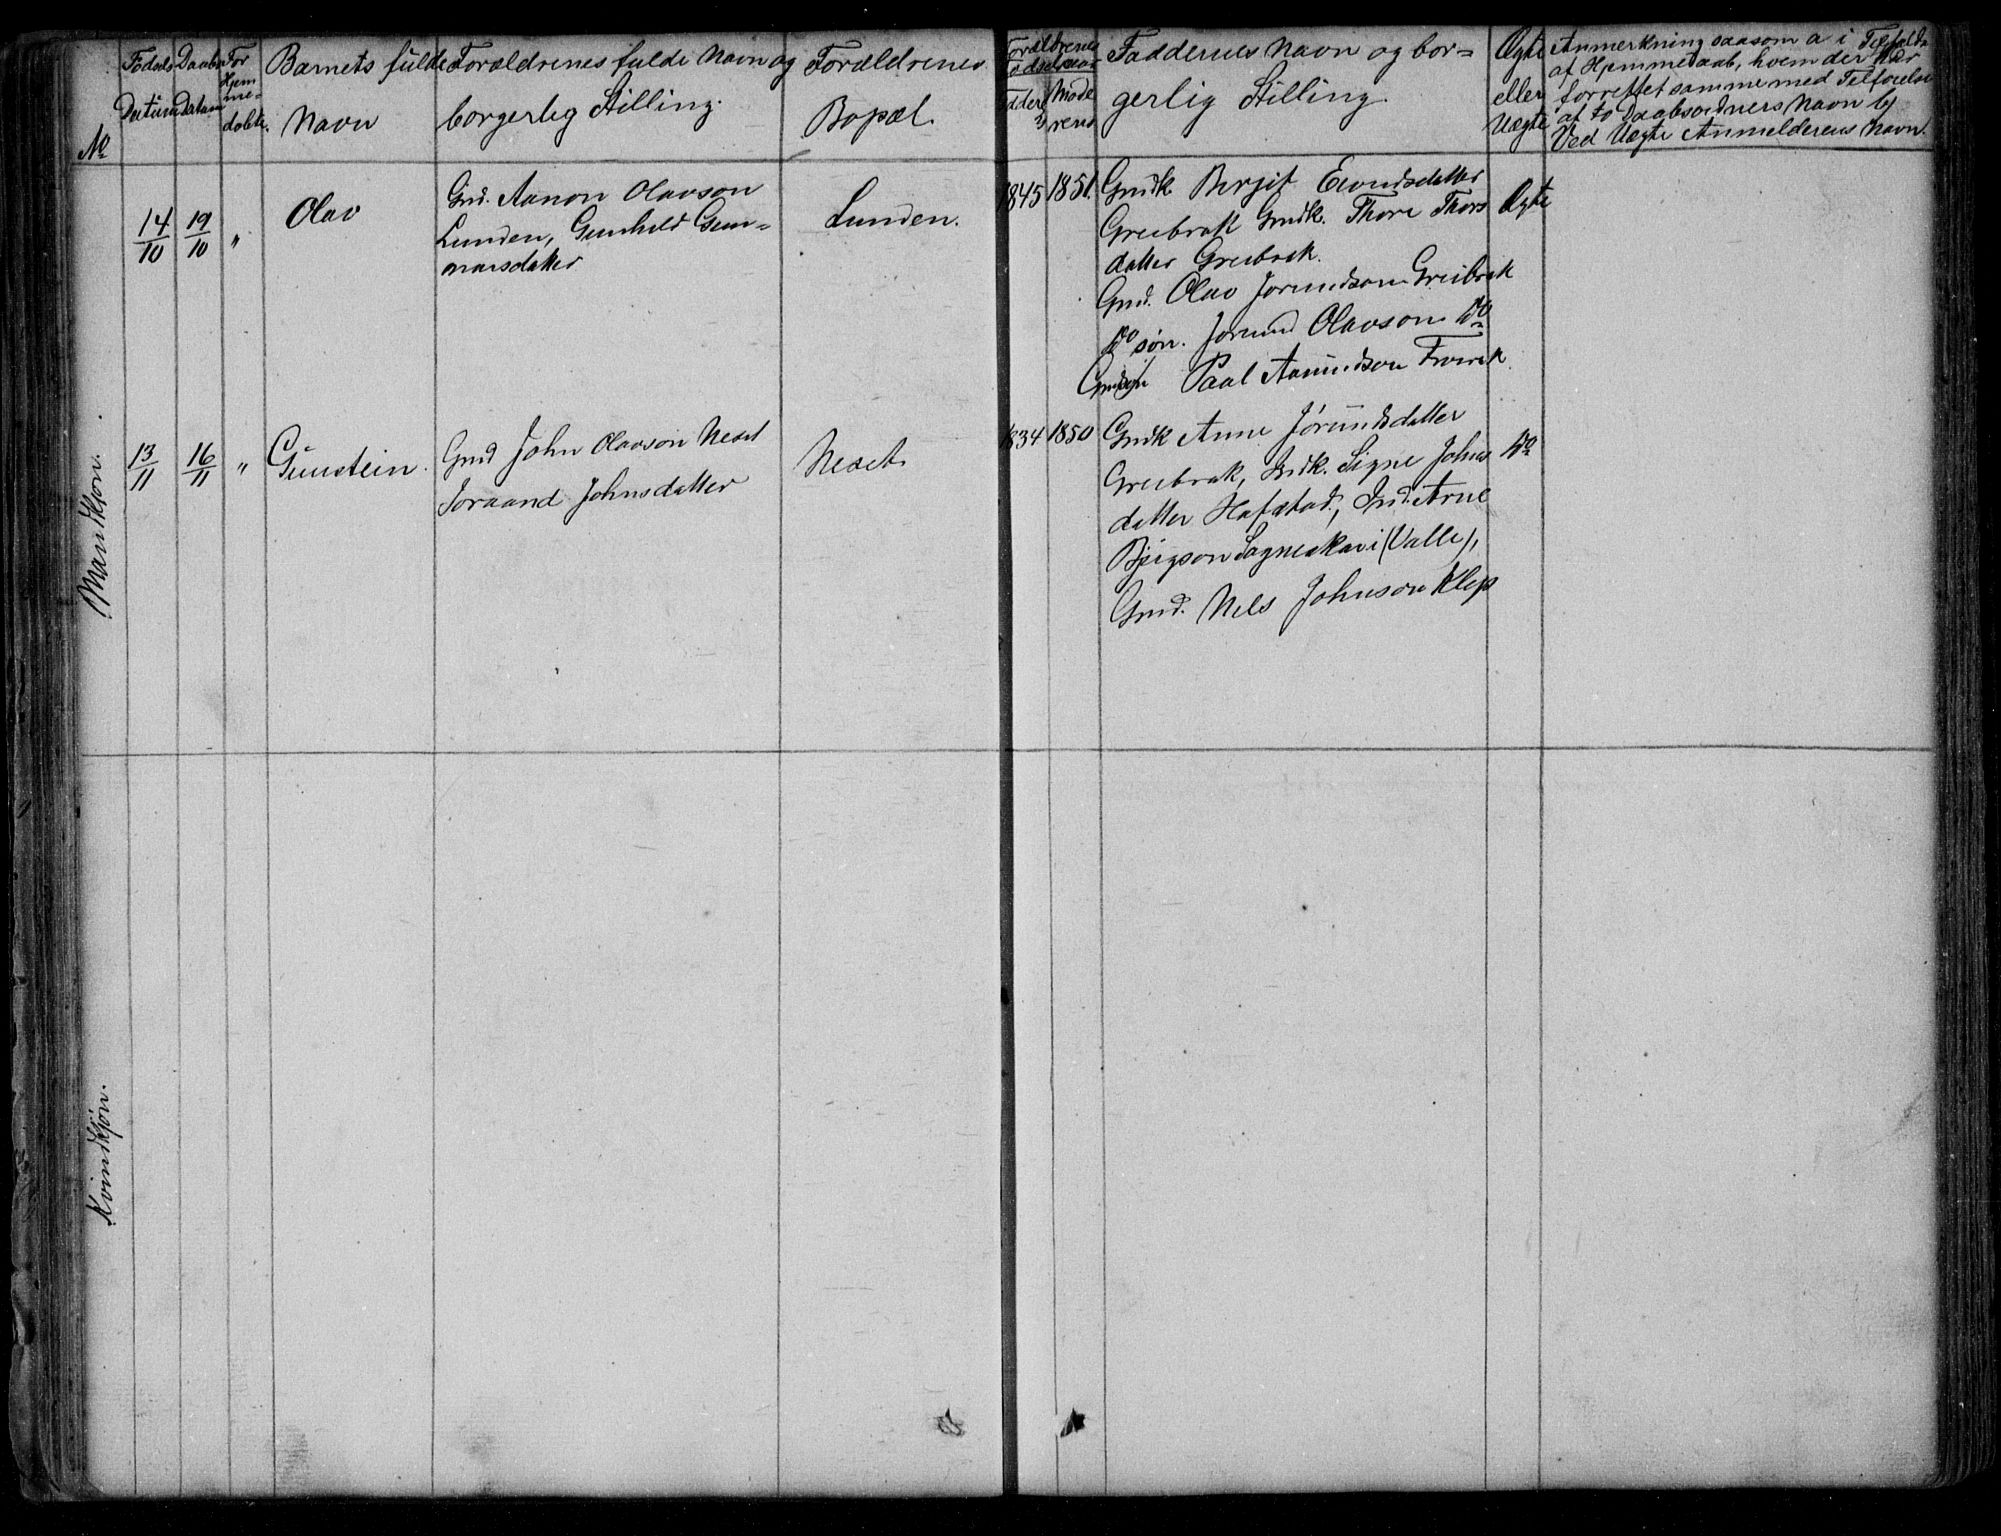 No
Fødsels Datum
Daabs Datum
For Hjemmedøbte.
Barnets fulde
Navn
Forældrenes fulde Navn og
borgerlig Stilling.
Forældrenes
Bopæl.
Forældrenes
Fødselsaar
Fadderes Navn og bor=
gerlig Stilling.
Ægte
eller
Uægte
Anmerkning saasom a i Tilfælde
af Hjemmedaab, hvem der har
forrettet samme med Tilføielse
af to Daabsvidners Navn b)
Ved Uægte Anmelderens Navn.
Mandkjøn.
14/10 19/10 "
Olav
Gmd. Aanon Olavson
Lunden, Gunhild Gun=
narsdatter
Lunden.
1845 1851.
Gmdk. Birgit Eivindsdatter
Greibrok Gmdk. Thore Thors
datter Greibrok.
Gmd. Olav Jorundson Greibrok
Do søn. Jorund Olavson Do
Paal Aamundson
Ægte
13/11 16/11 "
Gunstein.
Gmd John Olavson Neset
Joraand Johnsdatter
Neset
1834 1850
Gmdk Anne Jorundsdatter
Greibrok, Indk. Signe Johns
datter Hafstad, Ind. Arne
(Valle),
Gmd. Nils Johnson Klep
Do
Kvindkjøn.